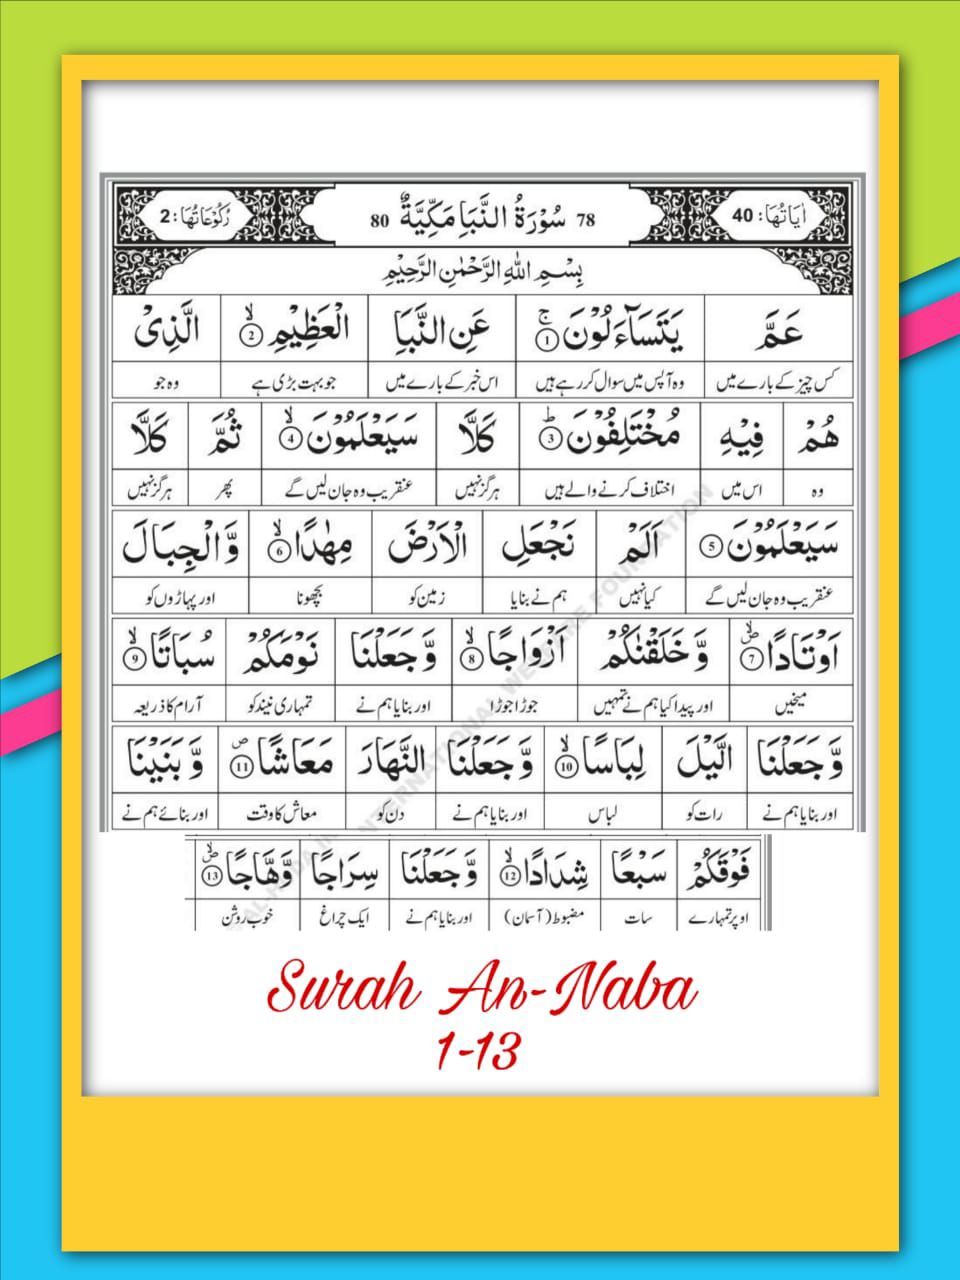 اٰيَاتُهَا: 40
78 سُوْرَةُ النَّبَاِ مَكِّيَّةٌ 80
رُكُوْعَاتُهَا: 2
بِسْمِ اللهِ الرَّحْمٰنِ الرَّحِيْمِ
عَمَّ يَتَسَآءَلُوْنَ ۚ 1 عَنِ النَّبَاِ الْعَظِيْمِ ۙ 2 الَّذِىْ
کس چیز کے بارے میں وہ آپس میں سوال کر رہے ہیں اس خبر کے بارے میں جو بہت بڑی ہے وہ جو
هُمْ فِيْهِ مُخْتَلِفُوْنَ ؕ 3 كَلَّا سَيَعْلَمُوْنَ ۙ 4 ثُمَّ كَلَّا
وہ اس میں اختلاف کرنے والے ہیں ہرگز نہیں عنقریب وہ جان لیں گے پھر ہرگز نہیں
سَيَعْلَمُوْنَ 5 اَلَمْ نَجْعَلِ الْاَرْضَ مِهٰدًا ۙ 6 وَّالْجِبَالَ
عنقریب وہ جان لیں گے کیا نہیں ہم نے بنایا زمین کو بچھونا اور پہاڑوں کو
اَوْتَادًا ۖ 7 وَّخَلَقْنٰكُمْ اَزْوَاجًا ۙ 8 وَّجَعَلْنَا نَوْمَكُمْ سُبَاتًا ۙ 9
میخیں اور پیدا کیا ہم نے تمہیں جوڑا جوڑا اور بنایا ہم نے تمہاری نیند کو آرام کا ذریعہ
وَّجَعَلْنَا الَّيْلَ لِبَاسًا ۙ 10 وَّجَعَلْنَا النَّهَارَ مَعَاشًا ۖ 11 وَّبَنَيْنَا
اور بنایا ہم نے رات کو لباس اور بنایا ہم نے دن کو معاش کا وقت اور بنائے ہم نے
فَوْقَكُمْ سَبْعًا شِدَادًا ۙ 12 وَّجَعَلْنَا سِرَاجًا وَّهَّاجًا ۖ 13
اوپر تمہارے سات مضبوط (آسمان) اور بنایا ہم نے ایک چراغ خوب روشن
Surah An-Naba
1-13